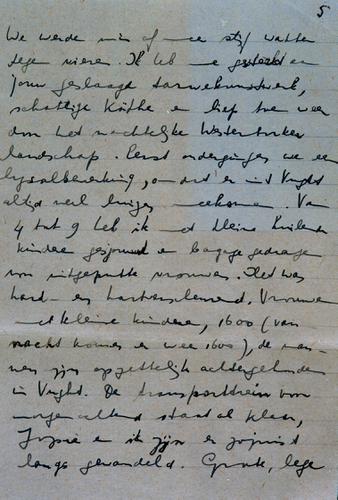 5
We werden min of meer stijf wakker
tegen vieren. Ik heb me gesterkt aan
jouw geslaagd tarwekunstwerk,
schattige Käthe en liep toen weer
door het nachtelijke Westerborker
landschap. Eerst ondergingen we een
lysolbewerking, omdat er uit Vught
altijd veel luizen meekomen. Van
4 tot 9 heb ik met kleine huilende
kinderen gesjouwd en bagage gedragen
van uitgeputte vrouwen. Het was
hard- en hartverscheurend. Vrouwen
met kleine kinderen, 1600 (van
nacht komen er weer 1600), de man-
nen zijn opzettelijk achtergehouden
in Vught. De transporttrein voor
morgenochtend staat al klaar,
Jopie en ik zijn er zojuist
langs gewandeld. Grote, lege